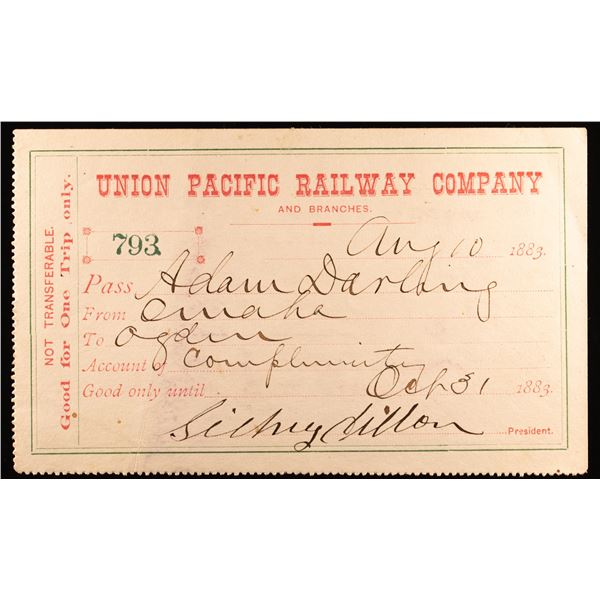 NOT TRANSFERABLE.
Good for One Trip only.
UNION PACIFIC RAILWAY COMPANY
AND BRANCHES.
793
Aug 10 1883.
Pass Adam Darling
From Omaha
To Ogden
Account of Compliments
Good only until Oct 31 1883.
Sidney Dillon President.